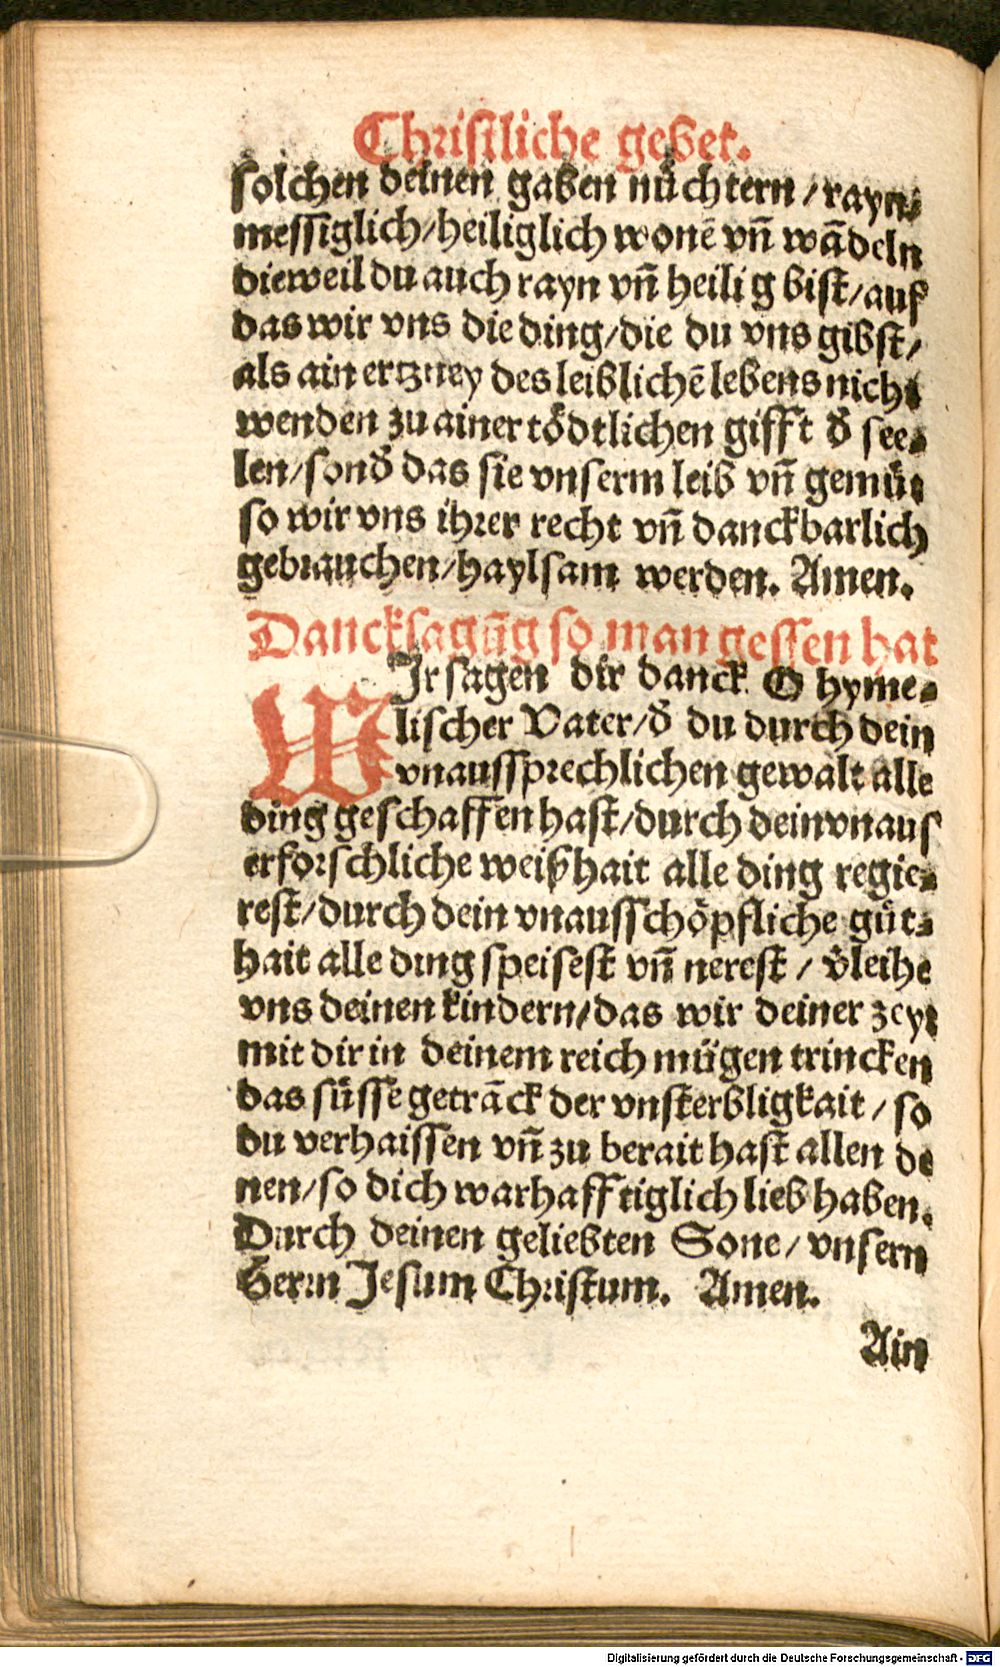 Christliche gebet.
solchen deinen gaben nüchtern / rayn⸗
messiglich/heiliglich wonē vñ wādeln
dieweil du auch rayn vñ heilig bist/auf
das wir vns die ding/die du vns gibst/
als ain ertzney des leiblichē lebens nicht
wenden zu ainer tödtlichen gifft d̄ see⸗
len/sond̄ das sie vnserm leib vñ gemüt
so wir vns ihrer recht vñ danckbarlich
gebrauchen/haylsam werden. Amen.
Dancksagūg so man gessen hat
WIr sagen dir danck O hyme⸗
lischer Vater/d̄ du durch dein
vnaussprechlichen gewalt alle
ding geschaffen hast/durch dein vnaus
erforschliche weißhait alle ding regie⸗
rest/durch dein vnausschöpfliche güt⸗
hait alle ding speisest vñ nerest / v̄leihe
vns deinen kindern/das wir deiner zeyt
mit dir in deinem reich mügen trincken
das süsse geträck der vnsterbligkait / so
du verhaissen vñ zu berait hast allen de
nen/so dich warhafftiglich lieb haben.
Durch deinen geliebten Sone / vnsern
Herrn Jesum Christum. Amen.
Ain
Digitalisierung gefördert durch die Deutsche Forschungsgemeinschaft - DFG